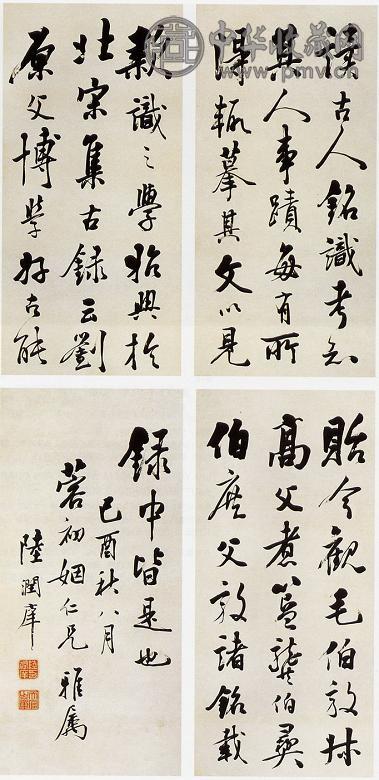 款識之學始興於
北宋集古錄云劉
原父博學好古能
讀古人銘識考知
其人事蹟每有所
得輒摹其文以見
貽今觀毛伯敦叔
高父煮簋龔伯彝
伯庶父敦諸銘載
錄中皆是也
己酉秋八月
蓉初姻仁兄雅屬
陸潤庠
中华收藏网
www.pmv.cn